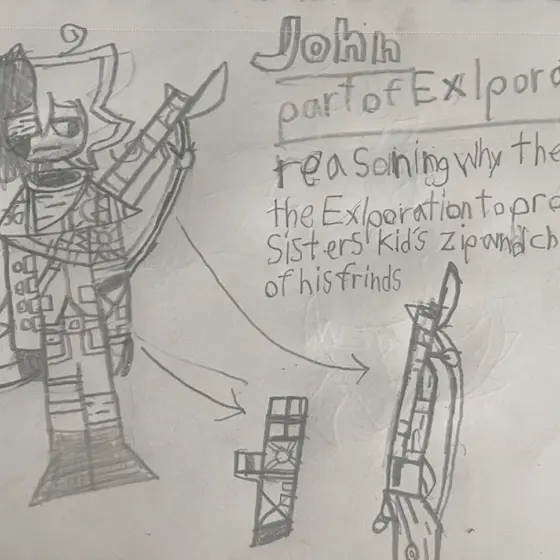 John
part of Exlpora
reasoining why the
the Exlporation to pre
Sisters' kid's zip and ch
of his frinds